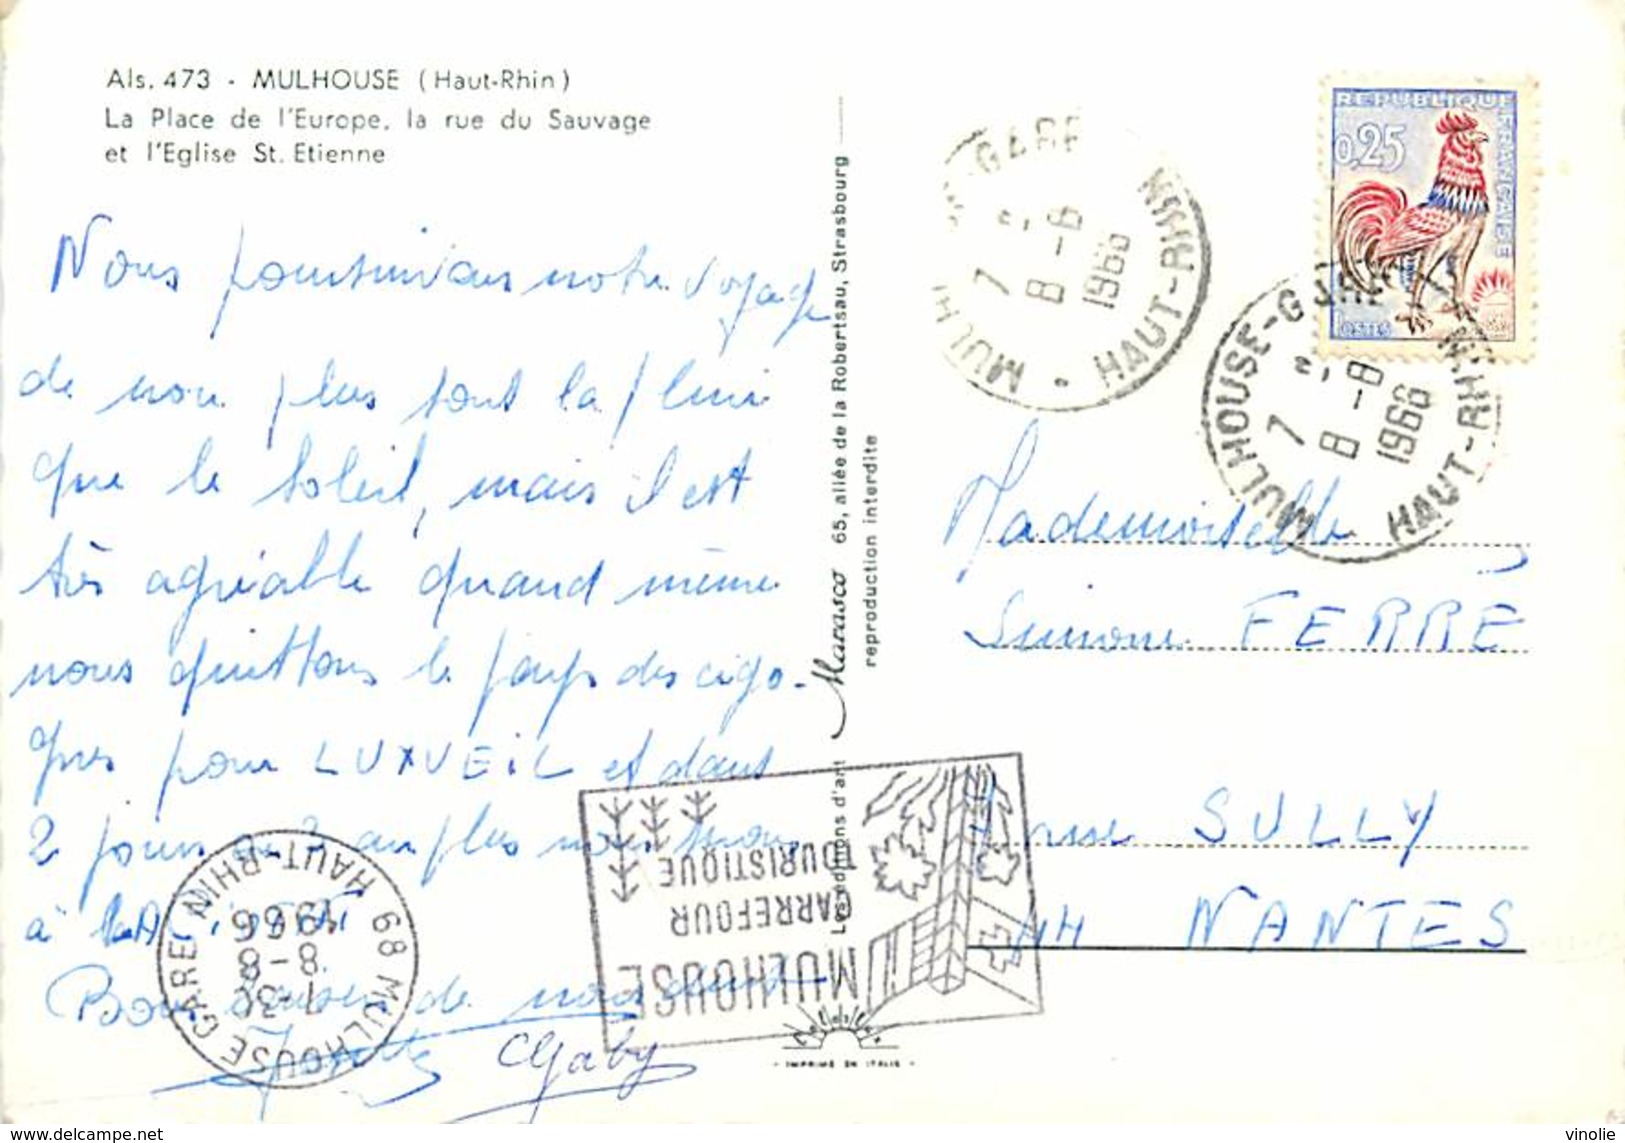 Als. 473 - MULHOUSE (Haut-Rhin)
La Place de l'Europe, la rue du Sauvage
et l'Eglise St. Etienne
Nous poursuivons notre voyage
de non plus sous la pluie
que le soleil, mais il est
très agréable quand même
nous quittons le pays des cigo-
gnes pour LUXUEIL et dans
2 jours au plus nous
à
Bons baisers de nous deux
Gaby
Les éditions d'art Marasco 65, allée de la Robertsau, Strasbourg
reproduction interdite
IMPRIMÉ EN ITALIE
REPUBLIQUE FRANÇAISE
0,25
POSTES
GARE
7
8-8
1966
HAUT-RHIN
MULHOUSE-GARE
7
8-8
1966
HAUT-RHIN
Mademoiselle
Simone FERRÉ
SULLY
44 NANTES
MULHOUSE
CARREFOUR
TOURISTIQUE
68 MULHOUSE GARE
7-30
8-8
1966
HAUT-RHIN
vinolie